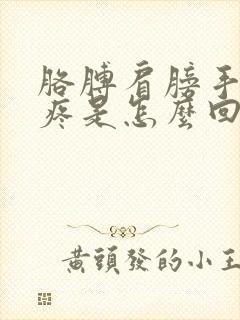 胳膊肩膀手
疼是怎麼回
黃頭發的小王